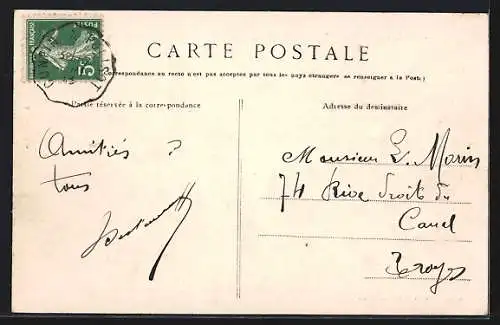 CARTE POSTALE
(Correspondance au recto n'est pas acceptée par tous les pays étrangers se renseigner à la Poste)
Partie réservée à la correspondance
Adresse du destinataire
5c
Amitiés
tous
Monsieur L. Morin
74 Rive droite du
Canal
Troyes